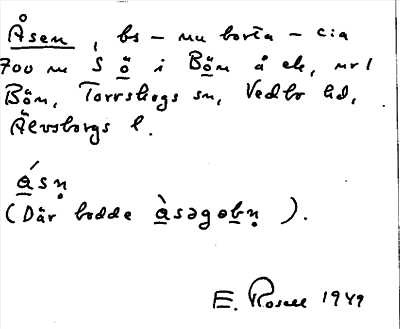 Åsen, bs – nu borta – c:a
700 m S ö i Bön å ek, nr 1
Bön, Torrskogs sn, Vedbo hd,
Älvsborgs l.
ásn̥
(Där bodde àsəgobn̥ ).
E. Rosell 1949